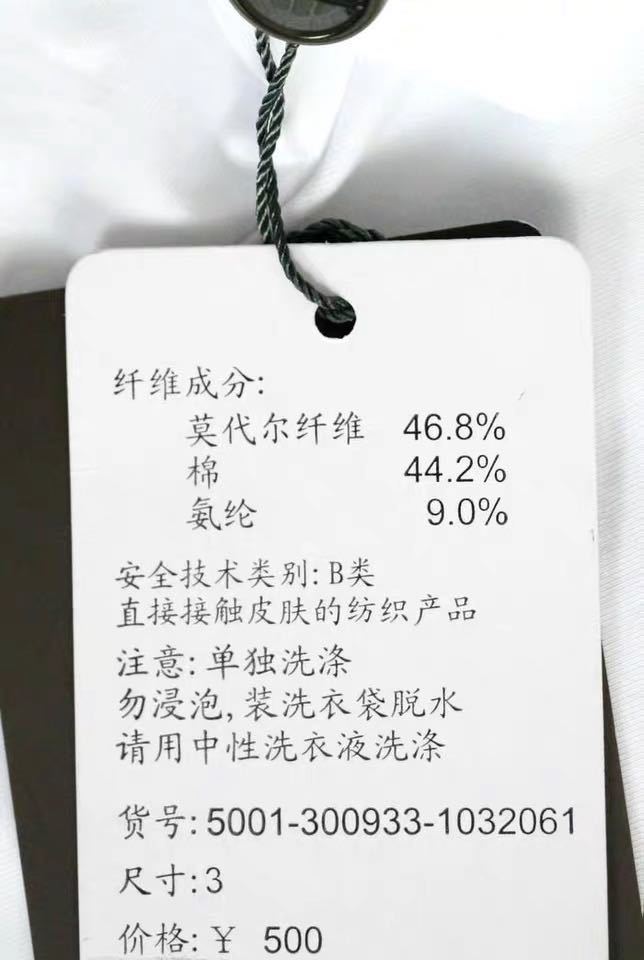 纤维成分:
莫代尔纤维 46.8%
棉 44.2%
氨纶 9.0%
安全技术类别: B类
直接接触皮肤的纺织产品
注意: 单独洗涤
勿浸泡, 装洗衣袋脱水
请用中性洗衣液洗涤
货号: 5001-300933-1032061
尺寸: 3
价格: ¥ 500